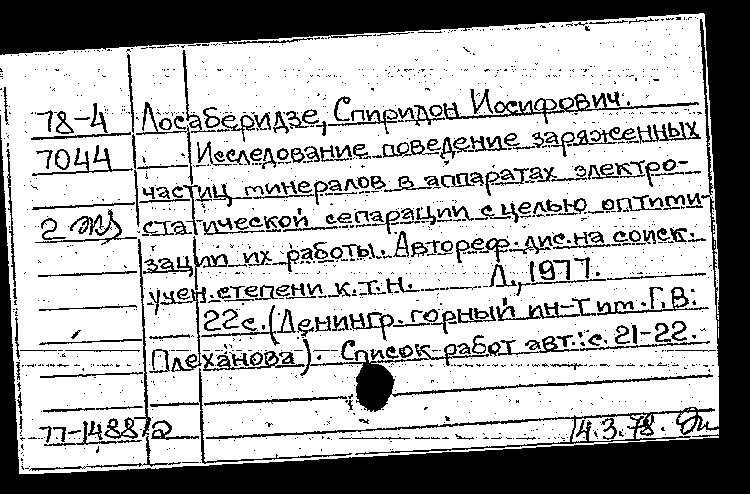 78-4 Лосаберидзе, Спиридон Иосифович.
7044 Исследование поведение заряженных
частиц минералов в аппаратах электро-
2 экз статической сепарации с целью оптими-
зации их работы. Автореф. дис. на соиск.
учен. степени к.т.н. Л., 1977.
22 с. (Ленингр. горный ин-т им. Г.В.
Плеханова). Список работ авт.: с. 21-22.
77-14887а 14.3.78.